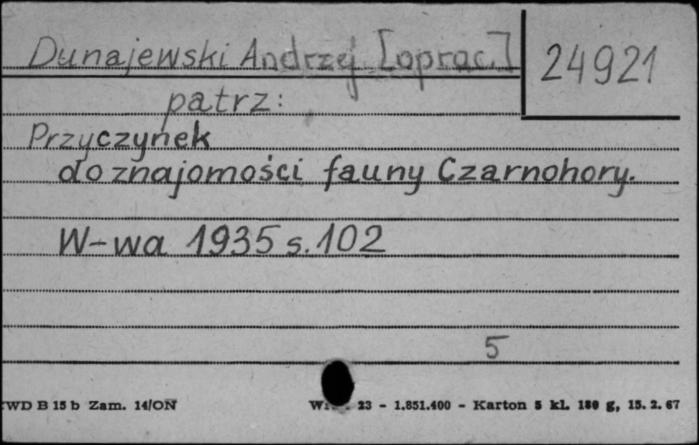 Dunajewski Andrzej [oprac.]
24921
patrz:
Przyczynek
do znajomości fauny Czarnohory.
W-wa 1935 s. 102
5
WD B 15 b Zam. 14/ON
23 - 1.851.400 - Karton 5 kl. 180 g, 15. 2. 67